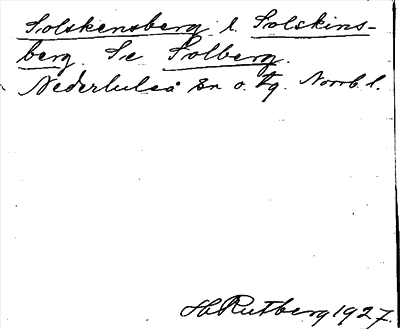 Solskensberg l. Solskins-
berg. Se Solberg.
Nederluleå sn o. tg. Norrb. l.
H Rutberg 1927.